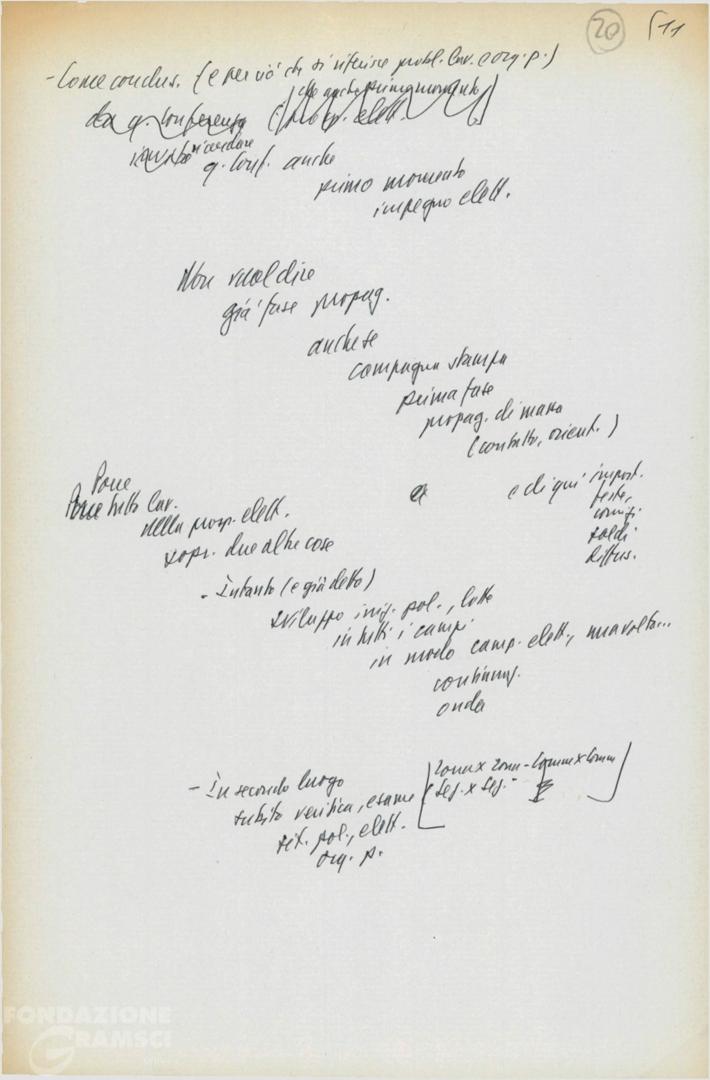 20 11
- Come conclus. (e per ciò che si riferisce probl. lav. e org. p.)
che anche primo momento
da q. conferenza prosp. elett.
ricordare
q. conf. anche
primo momento
impegno elett.
Non vuol dire
già fase propag.
anche se
campagna stampa
prima fase
propag. di massa
(contatto, orient.)
e di qui impost.
feste,
comizi
soldi
diffus.
Porre
Porre tutto lav.
nella prosp. elett.
sopr. due altre cose
- Intanto (e già detto)
sviluppo iniz. pol., lotte
in tutti i campi
in modo camp. elett., una volta...
continuaz.
onda
- In secondo luogo
subito verifica, esame
sit. pol., elett.
org. p.
[zona x zona - Comune x Comune
Sez. x Sez.]
FONDAZIONE
GRAMSCI